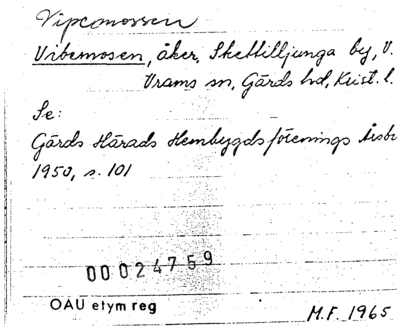 Vipemossen
Vibemosen, åker, Skettilljunga by, V.
Vrams sn, Gärds hd, Krist. l.
Se:
Gärds Härads Hembygdsförenings Årsb
1950, s. 101
00024759
OAU etym reg
M.F. 1965